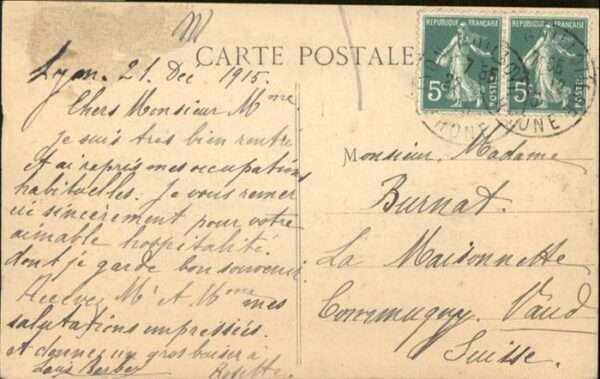 CARTE POSTALE
REPUBLIQUE FRANÇAISE
REPUBLIQUE FRANÇAISE
5c
POSTES
5c
POSTES
RHONE
RHONE
Lyon. 21. Dec 1915.
Chers Monsieur Mme
Je suis très bien rentré
et ai repris mes occupations
habituelles. Je vous remer
cie sincèrement pour votre
aimable hospitalité.
dont je garde bon souvenir
Recevez Mr et Mme mes
salutations empressées.
et donnez un gros baiser à
Rosette.
Monsieur, Madame
Burnat.
La Maisonnette
Commugny. Vaud
Suisse.